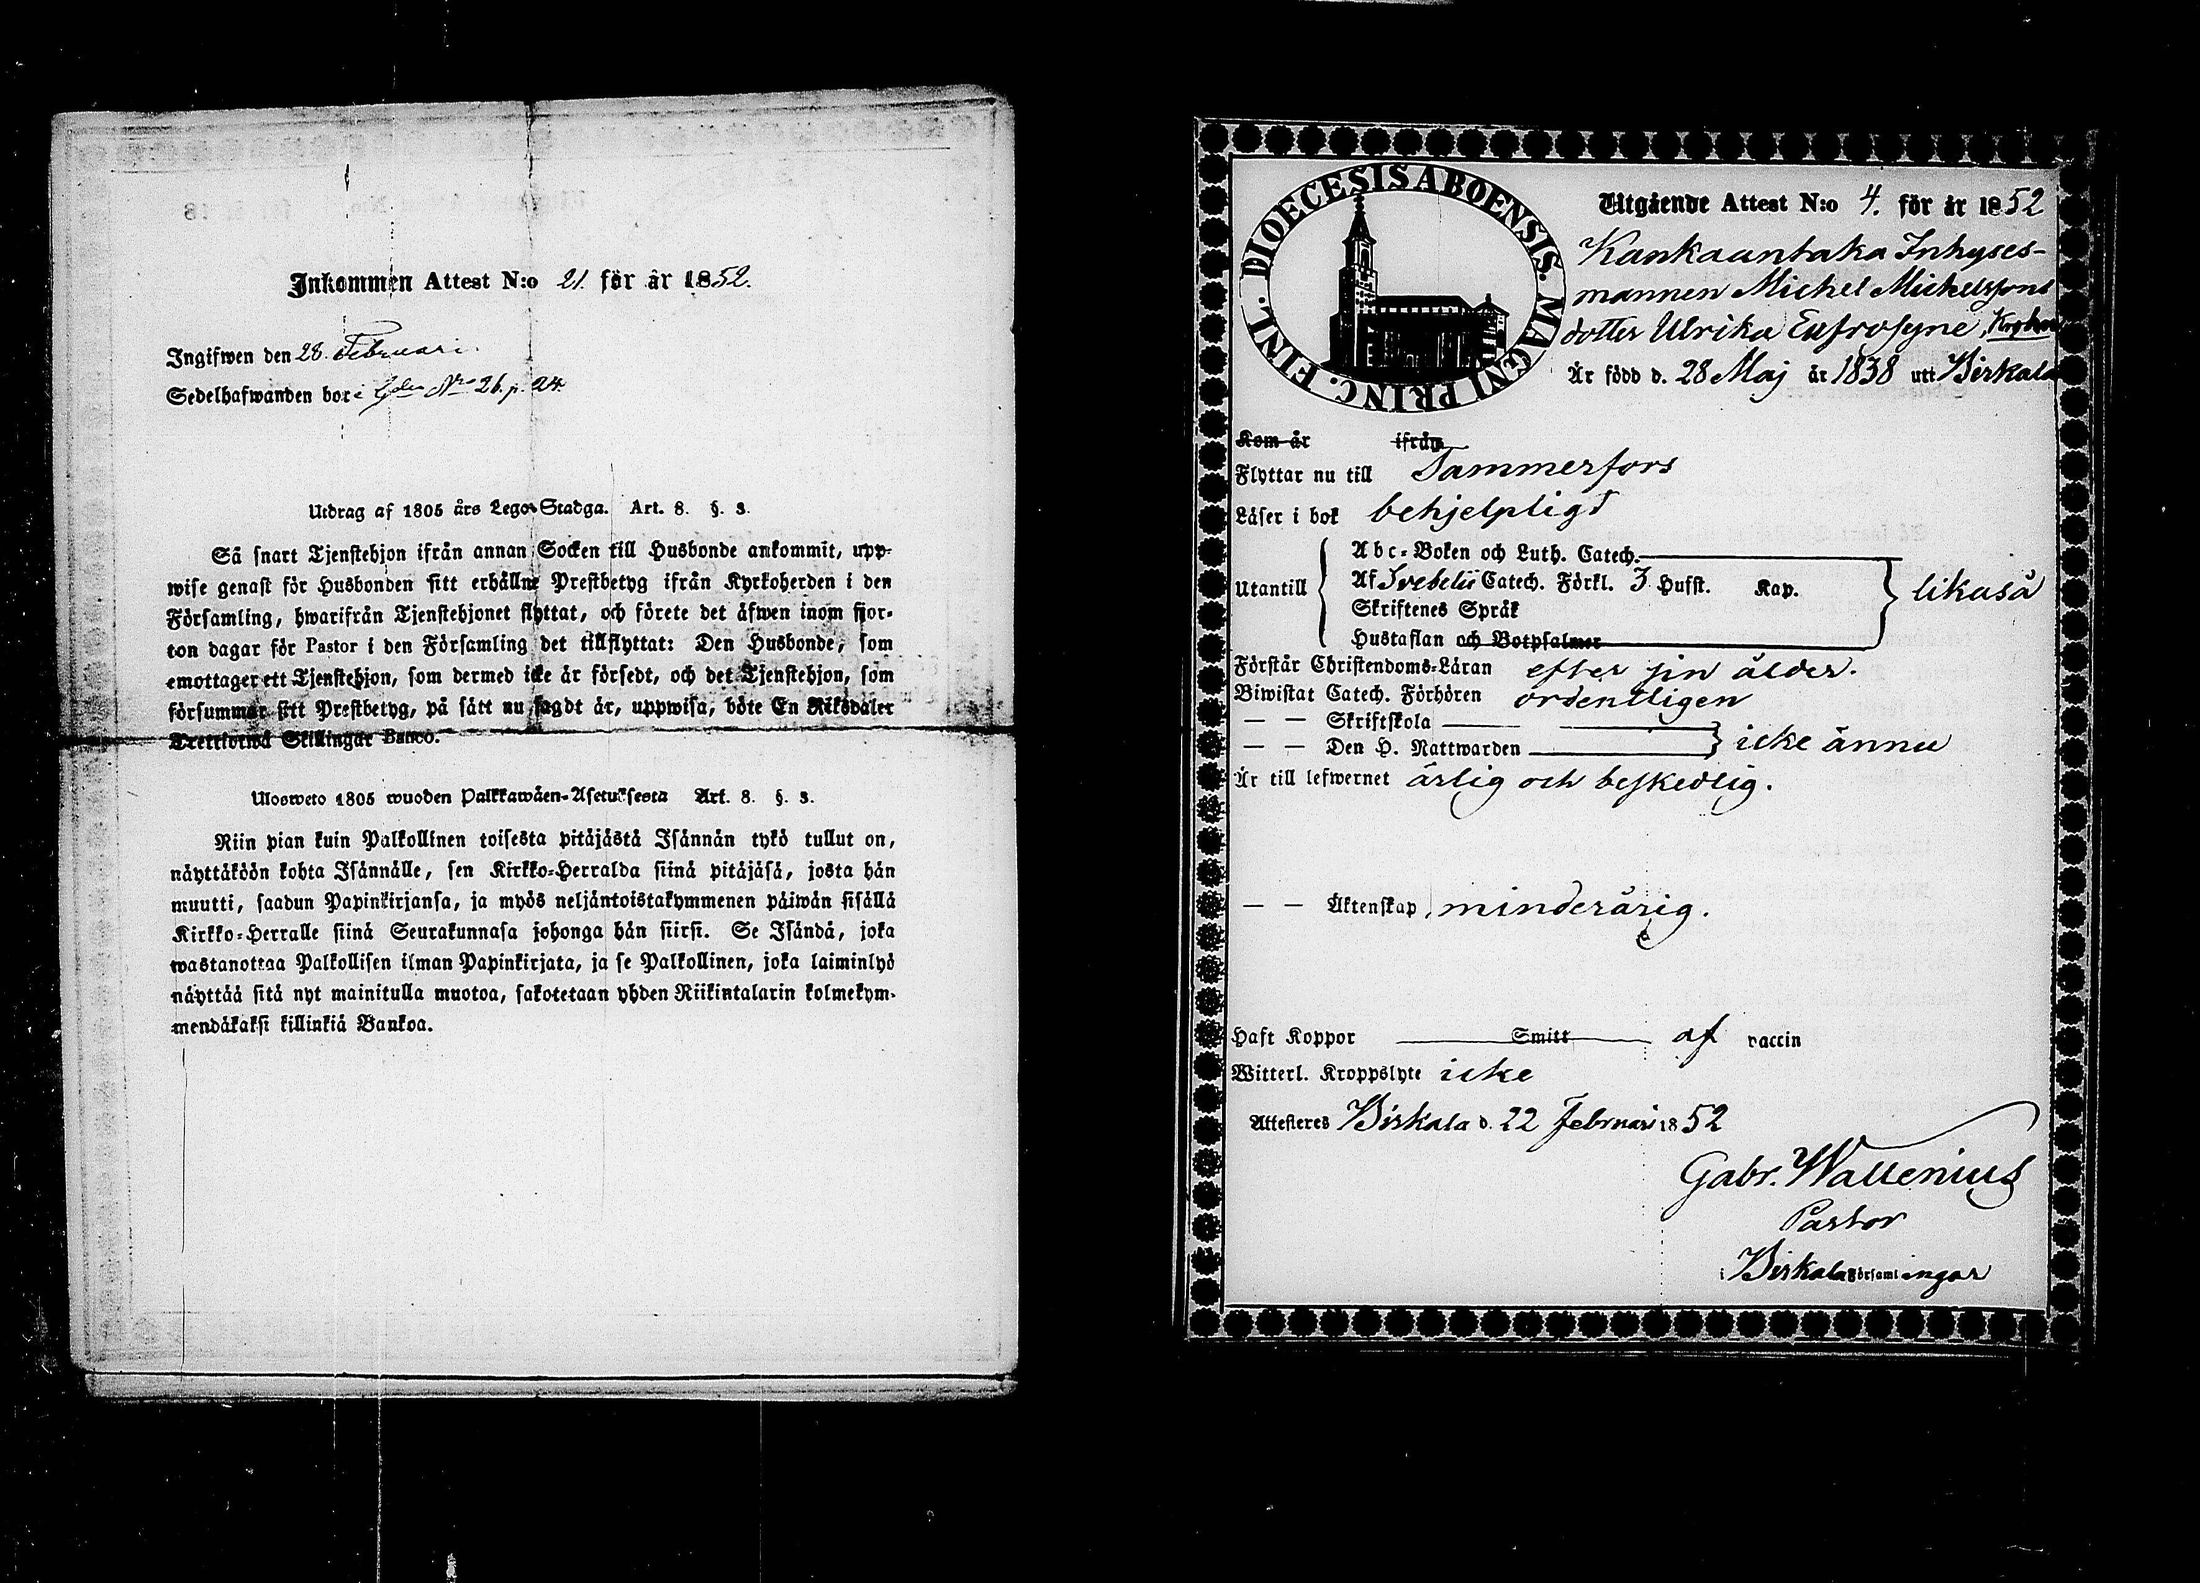 Inkommen Attest N:o 21. för år 1852.
Ingifwen den 28. Februari.
Sedelhafwanden bor i Gden Nro 26. p. 24.
Utdrag af 1805 års Lego-Stadga. Art. 8. §. 3.
Så snart Tjenstehjon ifrån annan Socken till Husbonde ankommit, upp-
wise genast för Husbonden sitt erhållne Prestbetyg ifrån Kyrkoherden i den
Församling, hwarifrån Tjenstehjonet flyttat, och förete det äfwen inom fjor-
ton dagar för Pastor i den Församling det tillflyttat: Den Husbonde, som
emottager ett Tjenstehjon, som dermed icke är försedt, och det Tjenstehjon, som
försummar sitt Prestbetyg, på sätt nu sagdt är, uppwisa, böte En Riksdaler
Trettiotwå Skillingar Banco.
Ulosweto 1805 wuoden Palkkawäen-Asetuksesta Art. 8. §. 3.
Niin pian kuin Palkollinen toisesta pitäjästä Isännän tykö tullut on,
näyttäköön kohta Isännälle, sen Kirkko-Herralda siinä pitäjäsä, josta hän
muutti, saadun Papinkirjansa, ja myös neljäntoistakymmenen päiwän sisällä
Kirkko-Herralle siinä Seurakunnasa johonga hän siirsi. Se Isändä, joka
wastanottaa Palkollisen ilman Papinkirjata, ja se Palkollinen, joka laiminlyö
näyttää sitä nyt mainitulla muotoa, sakotetaan yhden Riikintalarin kolmekym-
mendäkaksi killinkiä Bankoa.
DIOECESIS ABOENSIS. MAGNI PRINC. FINL.
Utgående Attest N:o 4. för år 1852
Kankaantaka Inhyses-
mannen Michel Michelssons
dotter Ulrika Eufrosyne,
Är född d. 28 Maj år 1838 utt Birkala
Kom år ifrån
Flyttar nu till Tammerfors
Läser i bok behjelpligt
Utantill
Abc-Boken och Luth. Catech.
Af Svebelii Catech. Förkl. 3 Hufst. Kap. likaså
Skriftenes Språk
Hustaflan och Botpsalmer
Förstår Christendoms-Läran efter sin ålder.
Biwistat Catech. Förhören ordentligen
— — Skriftskola
— — Den H. Nattwarden icke ännu
Är till lefwernet ärlig och beskedlig.
— — Äktenskap minderårig.
Haft Koppor Smitt af vaccin
Witterl. Kroppslyte icke
Attesteres Birkala d. 22 Februari 1852
Gabr. Wallenius
Pastor
i Birkala Församlingar